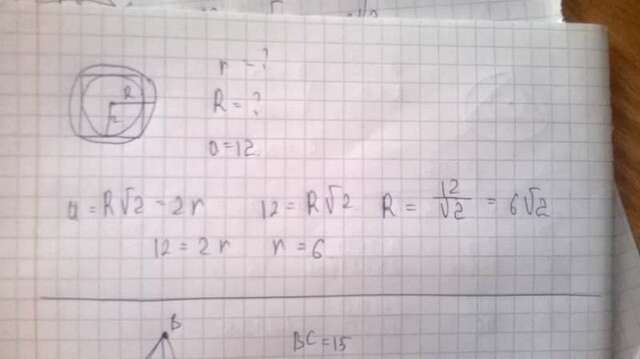 r = ?
R
R = ?
r
a = 12.
a = R√2 = 2r 12 = R√2 R = 12/√2 = 6√2
12 = 2r r = 6
B
BC = 15